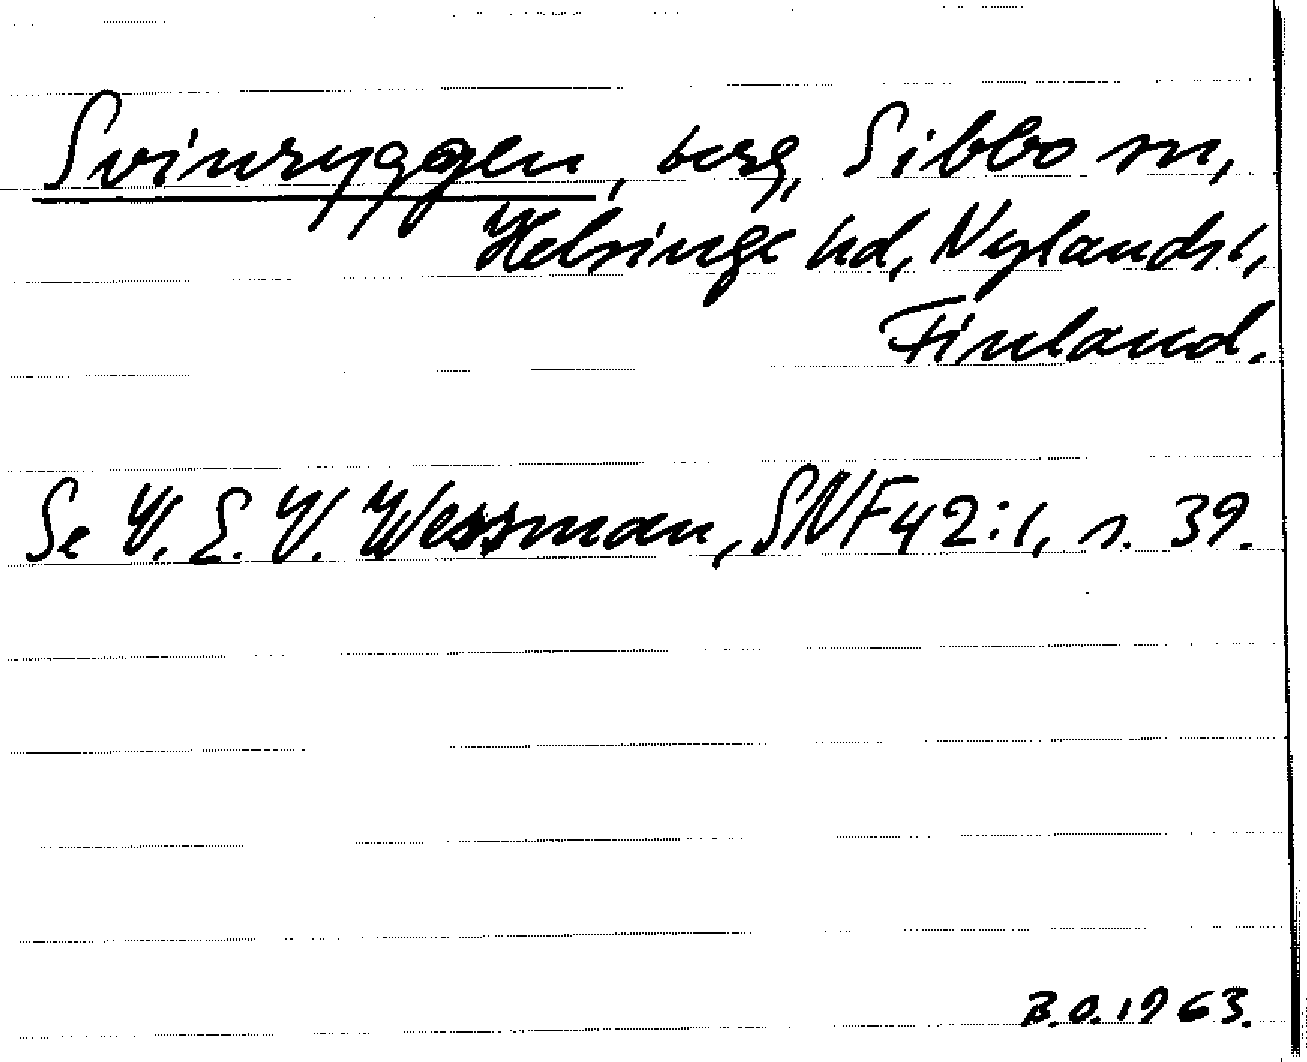 Svinryggen, berg, Sibbo sn,
Helsinge hd, Nylands l,
Finland.
Se V. E. V. Wessman, SNF 42:1, s. 39.
B.O. 1963.